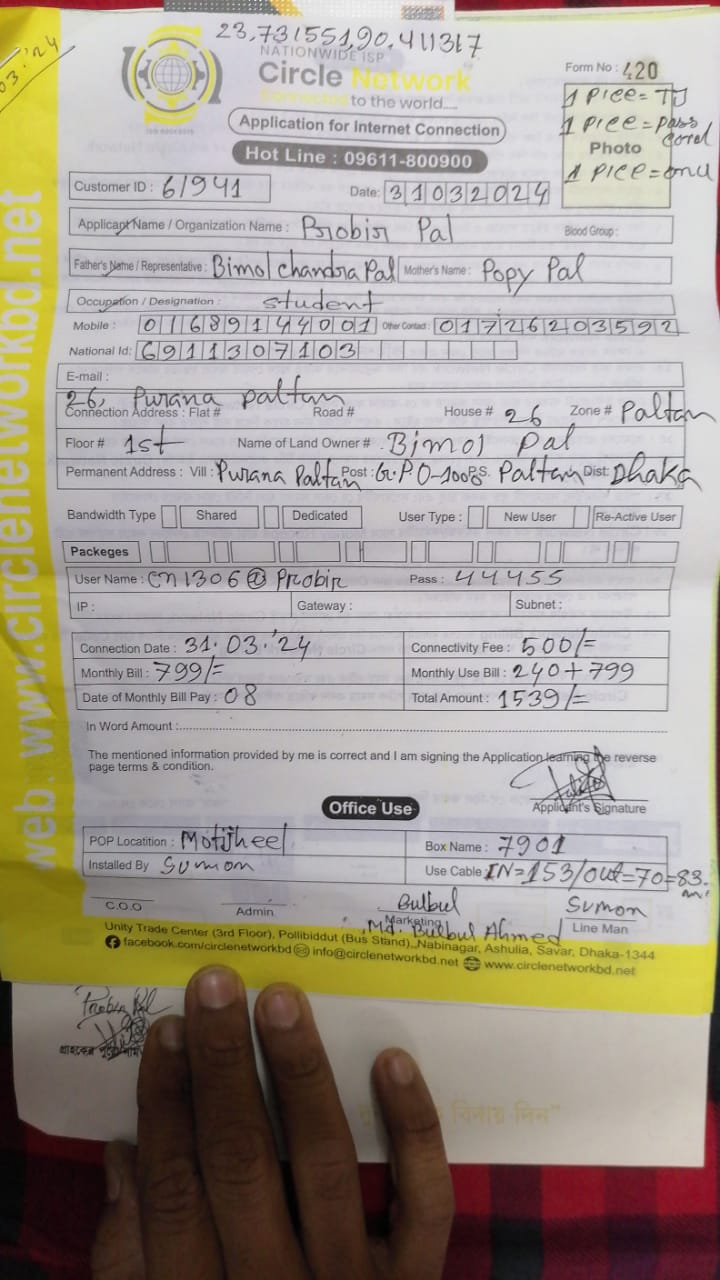 23,731551,90.411317
03.'24
NATIONWIDE ISP
Circle Network
Connected to the world.....
ISO 9001:2015
Application for Internet Connection
Hot Line : 09611-800900
Form No : 420
1 Pice = TJ
1 Pice = pass cord
Photo
1 Pice = onu
web: www.circlenetworkbd.net
Customer ID : 61941
Date: 31032024
Applicant Name / Organization Name : Probir Pal Blood Group :
Father's Name / Representative : Bimol chandra Pal Mother's Name : Popy Pal
Occupation / Designation : student
Mobile : 01689144001 Other Contact : 01726203592
National Id: 6911307103
E-mail :
26, Purana paltan
Connection Address : Flat # Road # House # 26 Zone # Paltan
Floor # 1st Name of Land Owner # Bimol Pal
Permanent Address : Vill : Purana Paltan Post : G.P.O-1000 P.S. Paltan Dist: Dhaka
Bandwidth Type Shared Dedicated User Type : New User Re-Active User
Packeges
User Name : cn1306@Probir Pass : 44455
IP : Gateway : Subnet :
Connection Date : 31.03.'24 Connectivity Fee : 500/=
Monthly Bill : 799/= Monthly Use Bill : 240+799
Date of Monthly Bill Pay : 08 Total Amount : 1539/=
In Word Amount :
The mentioned information provided by me is correct and I am signing the Application learning the reverse
page terms & condition.
Applicant's Signature
Office Use
POP Locatition : Motijheel Box Name : 7901
Installed By Sumon Use Cable IN=153/out=70=83.m.
Bulbul Sumon
C.O.O Admin. Marketing Line Man
Md. Bulbul Ahmed
Unity Trade Center (3rd Floor), Pollibiddut (Bus Stand), Nabinagar, Ashulia, Savar, Dhaka-1344
facebook.com/circlenetworkbd info@circlenetworkbd.net www.circlenetworkbd.net
Probir Pal
গ্রাহকের
বিদায় দিন"